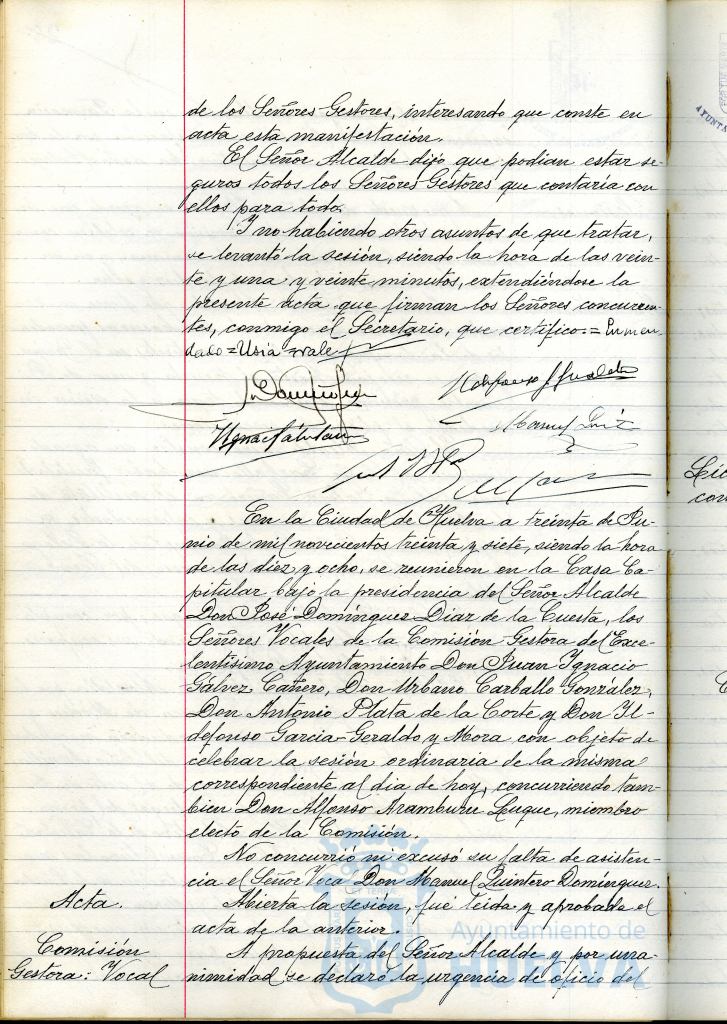 de los Señores Gestores, interesando que conste en
acta esta manifestación.
El Señor Alcalde dijo que podian estar se-
guros todos los Señores Gestores que contaría con
ellos para todo.
Y no habiendo otros asuntos de que tratar,
se levantó la sesión, siendo la hora de las vein-
te y una y veinte minutos, extendiéndose la
presente acta que firman los Señores concurren-
tes, conmigo el Secretario, que certifico.=Enmen-
dado=Usia=vale
En la Ciudad de Huelva a treinta de Ju-
nio de mil novecientos treinta y siete, siendo la hora
de las diez y ocho, se reunieron en la Casa Ca-
pitular bajo la presidencia del Señor Alcalde
Don José Domínguez Diaz de la Cuesta, los
Señores Vocales de la Comisión Gestora del Exce-
lentísimo Ayuntamiento Don Juan Ignacio
Gálvez Cañero, Don Urbano Carballo González,
Don Antonio Plata de la Corte y Don Il-
defonso Garcia-Geraldo y Mora con objeto de
celebrar la sesión ordinaria de la misma
correspondiente al dia de hoy, concurriendo tam-
bien Don Alfonso Aramburu Luque, miembro
electo de la Comisión.
No concurrió ni excusó su falta de asisten-
cia el Señor Vocal Don Manuel Quintero Domínguez.
Acta.
Abierta la sesión, fué leida y aprobada el
acta de la anterior.
Comisión
Gestora: Vocal
A propuesta del Señor Alcalde y por una-
nimidad se declaró la urgencia de oficio del
Ayuntamiento de